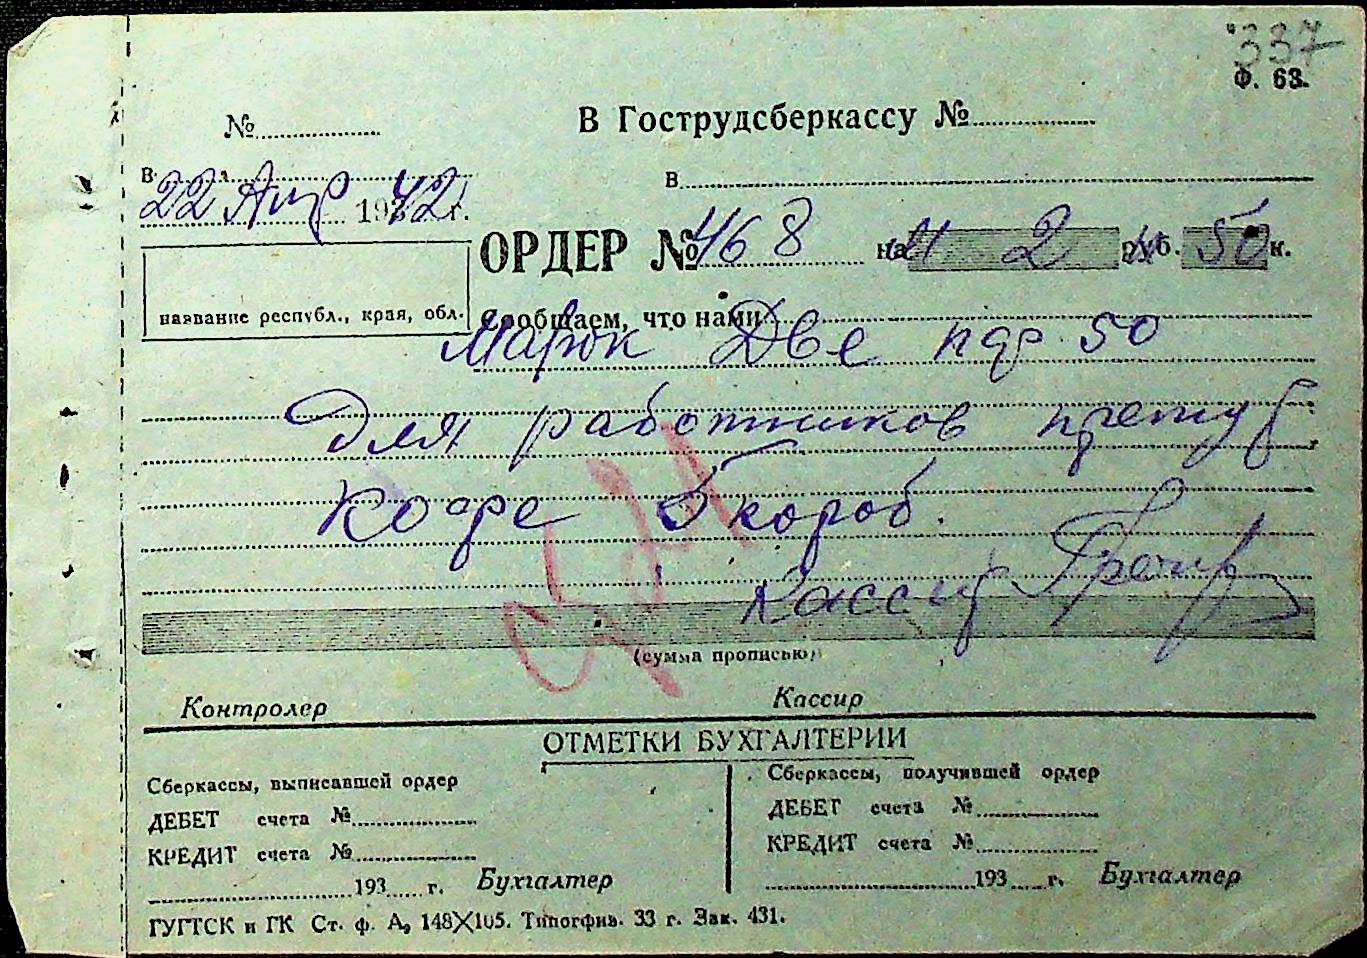 337
Ф. 63.
№
В Гострудсберкассу №
в
в
22 Апр 1942 г.
ОРДЕР № 468 на М 2 руб. 50 к.
название республ., края, обл.
Сообщаем, что нами
Марок Две пфг 50
для работников
Кофе 5 короб.
Кассир
(сумма прописью)
Контролер Кассир
ОТМЕТКИ БУХГАЛТЕРИИ
Сберкассы, выписавшей ордер
Сберкассы, получившей ордер
ДЕБЕТ счета №
ДЕБЕТ счета №
КРЕДИТ счета №
КРЕДИТ счета №
193 г. Бухгалтер
193 г. Бухгалтер
ГУГТСК и ГК Ст. ф. А, 148X105. Типогфив. 33 г. Зак. 431.